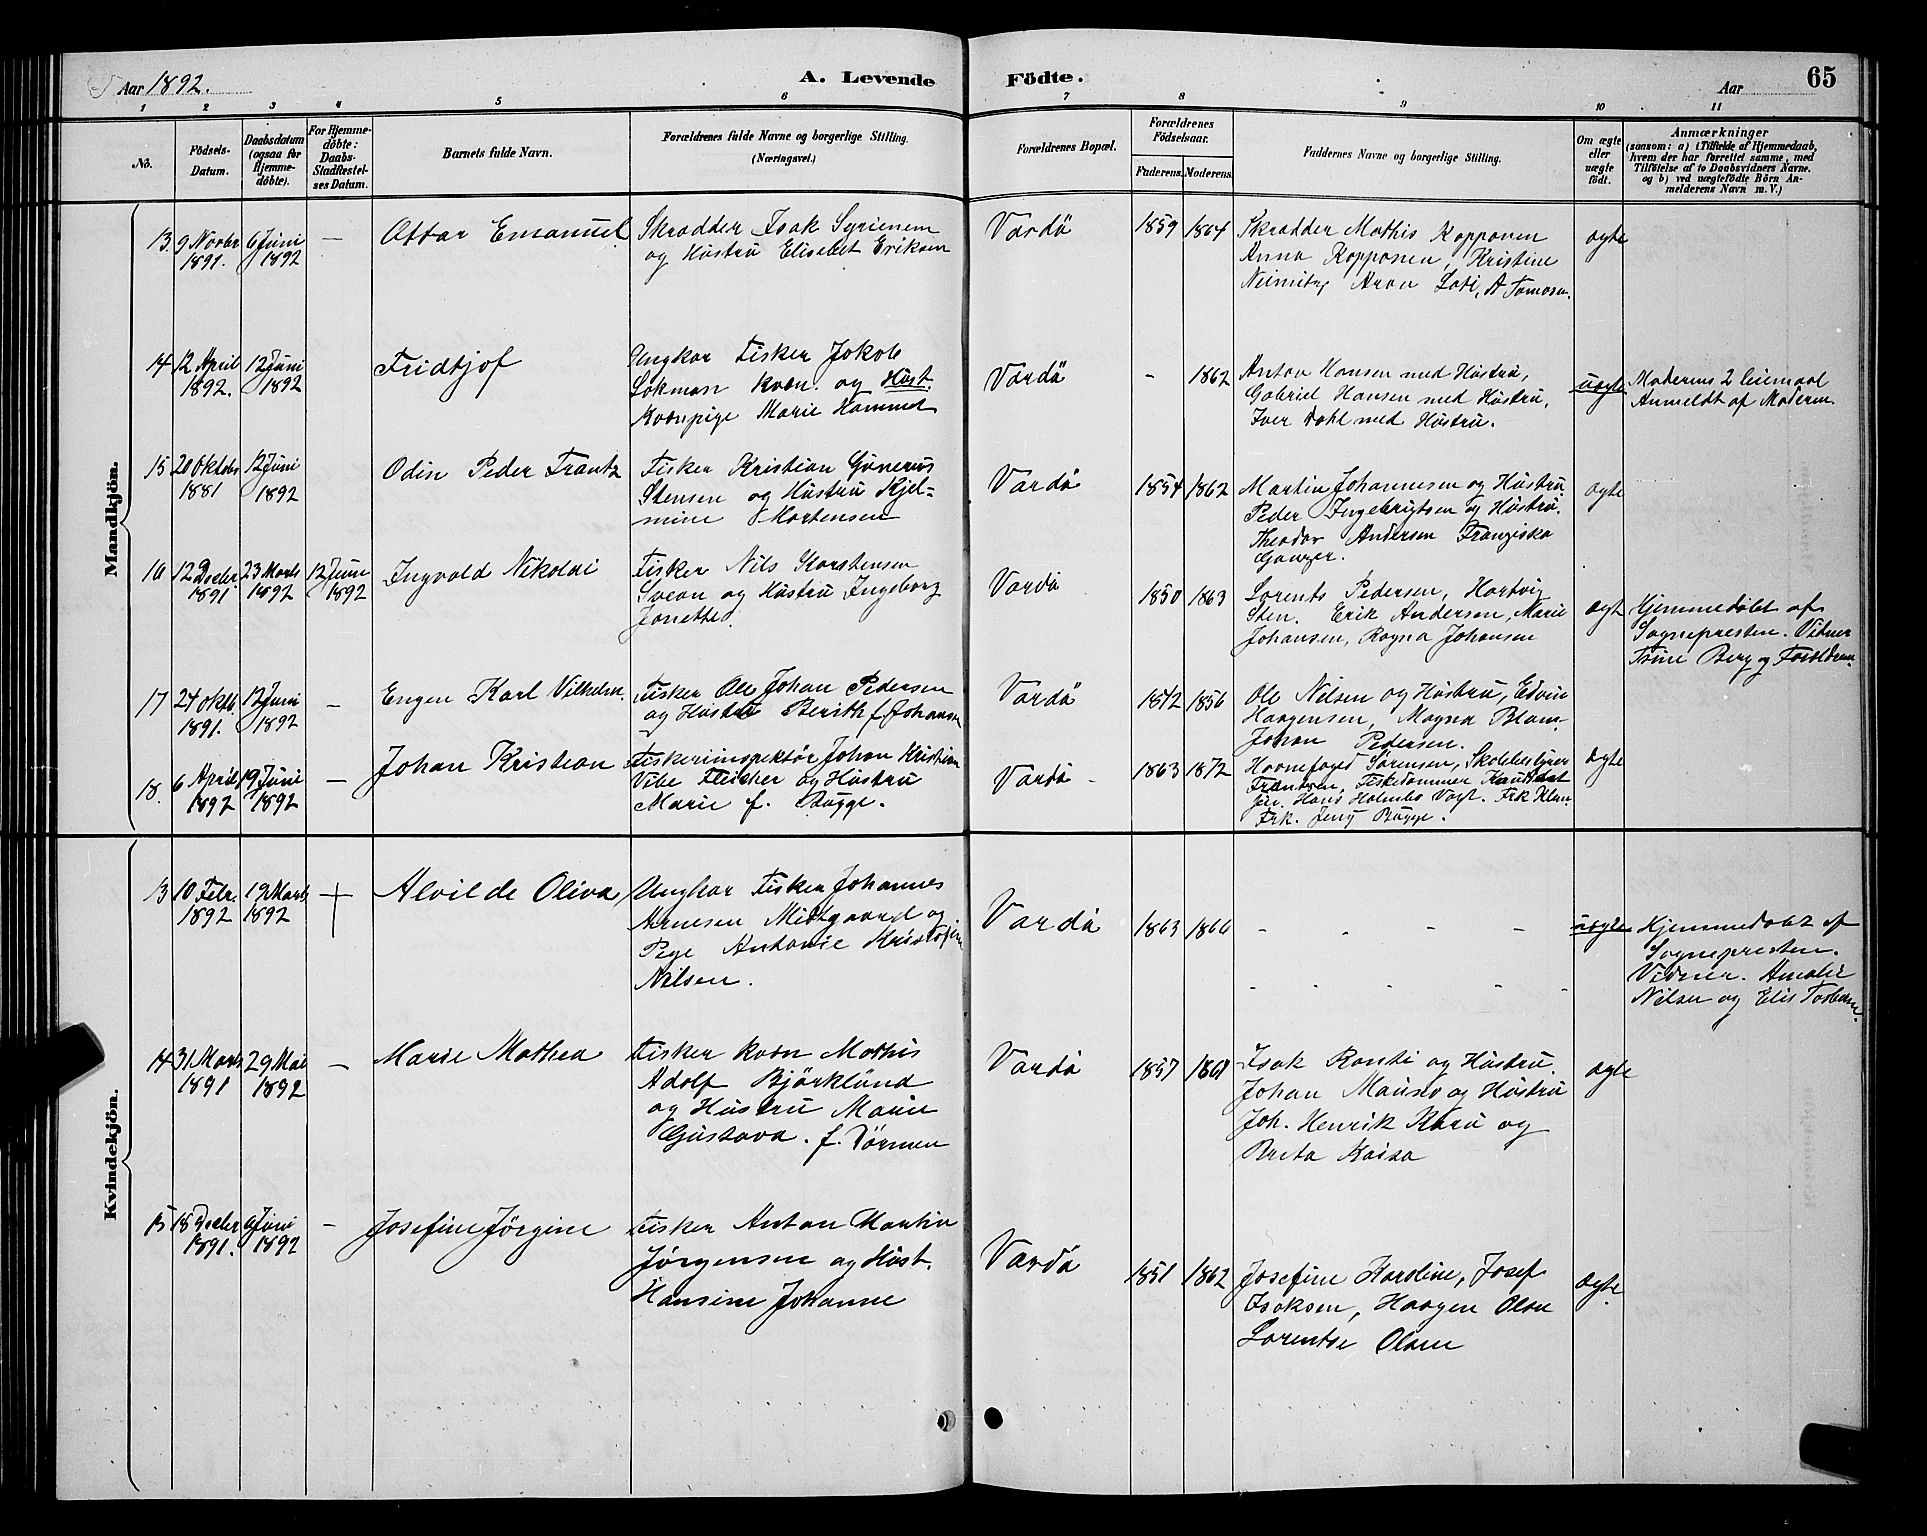 Aar 1892.
A. Levende
Födte.
Aar
65
1 2 3 4 5 6 7 8 9 10 11
No.
Födsels-
Datum.
Daabsdatum
(ogsaa for
Hjemme-
döbte).
For Hjemme-
döbte:
Daabs-
Stadfæstel-
ses Datum.
Barnets fulde Navn.
Forældrenes fulde Navne og borgerlige Stilling.
(Næringsvei.)
Forældrenes Bopæl.
Forældrenes
Födselsaar.
Faderens. Moderens.
Faddernes Navne og borgerlige Stilling.
Om ægte
eller
uægte
födt.
Anmærkninger
(saasom: a) i Tilfælde af Hjemmedaab,
hvem der har forrettet samme, med
Tilföielse af to Daabsvidners Navne,
og b) ved uægtefödte Börn An-
melderens Navn m. V.)
Mandkjön.
13 9 Novbr 1891. 6 Juni 1892 —
Ottar Emanuel
Skrædder Isak Syrienem
og Hustru Elisebet Eriksen
Vardö
1859 1864
Skrædder Mathis Kopponen
Anna Kopponen, Kristine
Aron Loti,
ægte
14 12 April 1892. 12 Juni 1892
Fridtjof
Ungkar Fisker Jakob
Lokman kvæn. og Hust.
Kvænpige Marie Hammed
Vardö
- 1862
Anton Hansen med Hustru,
Gabriel Hansen med Hustru,
Iver Dahl med Hustru.
uægte
Moderens 2 leiemaal
Anmeldt af Moderen
15 20 Oktobr 1881 12 Juni 1892
Odin Peder Frantz
Fisker Kristian Gunerius
Stensen og Hustru Hjel-
mine Mortensen
Vardö
1854 1862
Martin Johannesen og Hustru.
Peder Ingebrigtsen og Hustru.
Theodor Andersen Franziska
ægte
16 12 Decbr 1891 23 Marts 1892 12 Juni 1892
Ingvald Nikolai
Fisker Nils Karstensen
Svean og Hustru Ingeborg
Jonette.
Vardö
1850 1863
Lorents Pedersen, Hartvig
Sten. Erik Andersen, Marie
Johansen, Ragna Johansen
ægt
Hjemmedöbt af
Sognepresten. Vidner
Berg og Forældrene
17 24 Oktb. 1891. 12 Juni 1892 -
Eugen Karl Vilhelm.
Fisker Ole Johan Pedersen
og Hustru Berith f. Johansen
Vardö
1842 1856
Ole Nilsen og Hustru, Edvin
Haagensen, Magna Blom-
Johan Pedersen.
18. 6 April 1892 19 Juni 1892 —
Johan Kristian
Fiskeriinspektör Johan Kristian
Vibe Fleischer og Hustru
Marie f. Bugge.
Vardö -
1863 1872
Havnefoged Sörensen, Skolebestyrer
Frantzen, Fiskedommer Kandidat
jür. Hans Holmbo Vogt. Frk
Frk. Jeny Bugge.
ægte
Kvindekjön.
13 10 Febr. 1892 19 Marts 1892 +
Alvilde Oliva
Ungkar Fisker Johannes
Arnesen Midtgaard og
Pige Antonie Kristofine
Nilsen.
Vardö
1863 1866
- - - -
- - - - -
uægte
Hjemmedöbt af
Sognepresten.
Vidner. Amalie
Nilsen og Elis
14 31 Marts 1891 29 Mai 1892 —
Marie Mathea
Fisker kvæn Mathis
Adolf Björklund
og Hustru Marie
Gustava. f. Törmen
Vardö
1857 1861
Isak Ranti og Hustru.
Johan og Hustru
Joh. Henrik Karu og
Brita Kaisa
ægte
15 18 Decbr 1891. 6 Juni 1892 -
Josefine Jörgine
Fisker Anton Martin
Jörgensen og Hust.
Hansine Johanne
Vardö
1851 1862
Josefine Karoline, Josef
Isaksen, Haagen Olsen
Lorentse Olsen
ægte